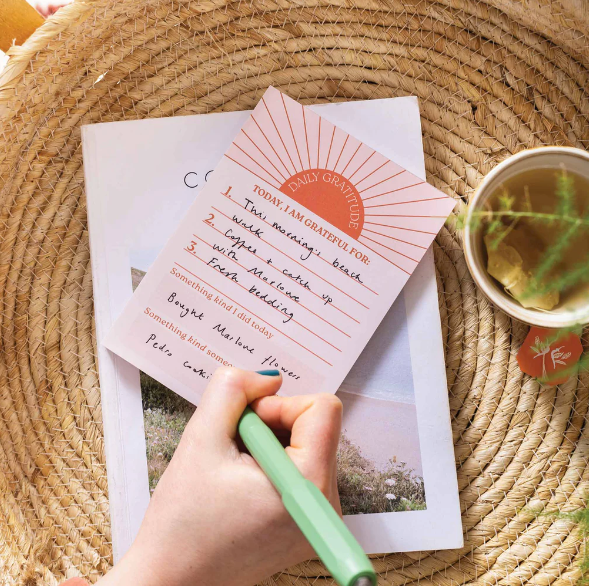 CO
DAILY GRATITUDE
TODAY, I AM GRATEFUL FOR:
1. This morning's beach
walk
2. Coffee + catch up
with Marlowe
3. Fresh bedding
Something kind I did today
Bought Marlowe flowers
Something kind someo
Pedro